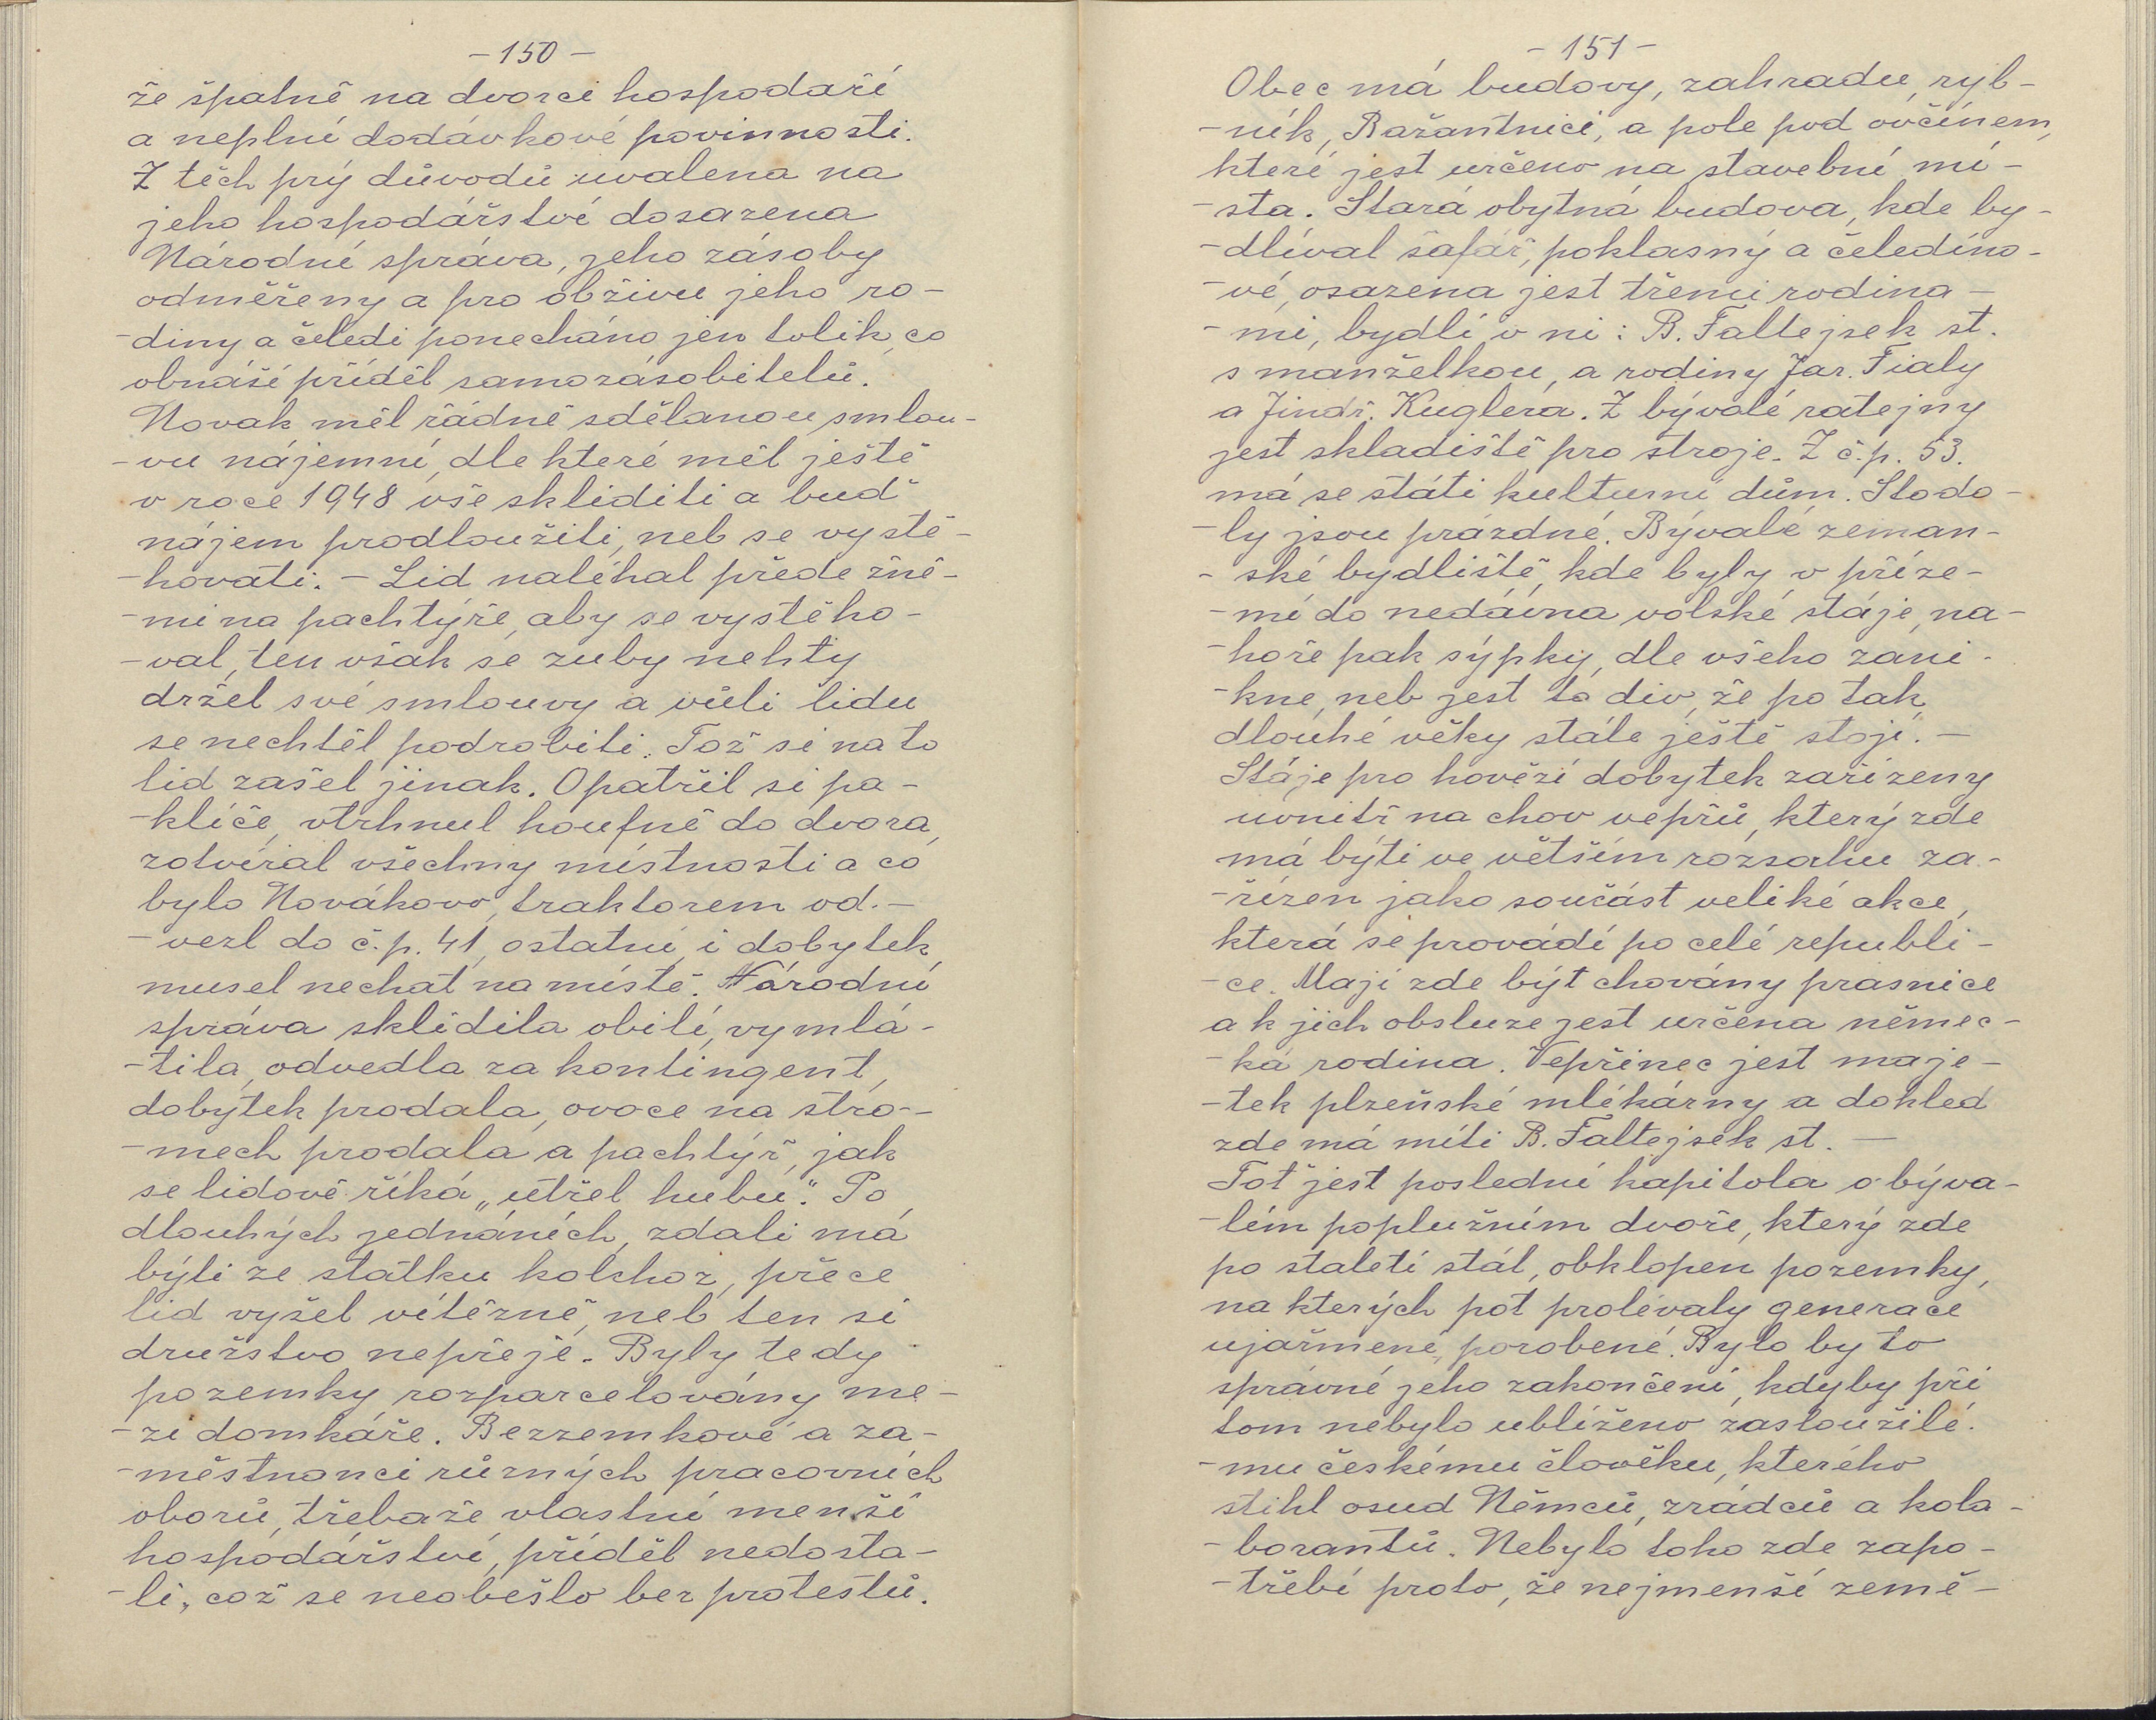 - 150 -
že špatně na dvorci hospodaří
a neplní dodávkové povinnosti.
Z těch prý důvodů uvalena na
jeho hospodářství dosazena
Národní správa, jeho zásoby
odměřeny a pro obživu jeho ro-
-diny a čeledi ponecháno jen tolik, co
obnáší příděl samozásobitelů.
Novak měl řádně sdělanou smlou-
-vu nájemní, dle které měl ještě
v roce 1948 vše skliditi a buď
nájem prodloužiti, neb se vystě-
-hovati. - Lid naléhal přede žně-
-mi na pachtýře, aby se vystěho-
-val, ten však se zuby nehty
držel své smlouvy a vůli lidu
se nechtěl podrobiti. Tož si na to
lid zašel jinak. Opatřil si pa-
-klíče, vtrhnul houfně do dvora,
zotvíral všechny místnosti a co
bylo Novákovo, traktorem od.-
-vezl do č.p. 41, ostatní i dobytek
musel nechat na místě. Národní
správa sklidila obilí, vymlá-
-tila, odvedla za kontingent,
dobytek prodala, ovoce na stro-
-mech prodala a pachtýř, jak
se lidově říká „utřel hubu“. Po
dlouhých jednáních, zdali má
býti ze statku kolchoz, přece
lid vyšel vítězně, neb ten si
družstvo nepřeje. Byly tedy
pozemky rozparcelovány me-
-zi domkáře. Bezzemkové a za-
-městnanci různých pracovních
oborů, třebaže vlastní menší
hospodářství, příděl nedosta-
-li, což se neobešlo bez protestů.
- 151 -
Obec má budovy, zahradu, ryb-
-ník, Bažantnici, a pole pod ovčínem,
které jest určeno na stavební mí-
-sta. Stará obytná budova, kde by-
-dlíval šafář, poklasný a čeledíno-
-vé, osazena jest třemi rodina-
-mi, bydlí v ní: B. Faltejsek st.
s manželkou, a rodiny Jar. Fialy
a Jindř. Kuglera. Z bývalé ratejny
jest skladiště pro stroje. Z č.p. 53.
má se státi kulturní dům. Stodo-
-ly jsou prázdné. Bývalé zeman-
-ské bydliště, kde byly v příze-
-mí do nedávna volské stáje, na-
-hoře pak sýpky, dle všeho zani-
-kne, neb jest to div, že po tak
dlouhé věky stále ještě stojí. -
Stáje pro hovězí dobytek zařízeny
uvnitř na chov vepřů, který zde
má býti ve větším rozsahu za-
-řízen jako součást veliké akce,
která se provádí po celé republi-
-ce. Mají zde být chovány prasnice
a k jich obsluze jest určena němec-
-ká rodina. Vepřinec jest maje-
-tek plzeňské mlékárny a dohled
zde má míti B. Faltejsek st. -
Toť jest poslední kapitola o býva-
-lém poplužním dvoře, který zde
po staletí stál, obklopen pozemky,
na kterých pot prolévaly generace
ujařmené, porobené. Bylo by to
správné jeho zakončení, kdyby při
tom nebylo ublíženo zasloužilé.
-mu českému člověku, kterého
stihl osud Němců, zrádců a kola-
-borantů. Nebylo toho zde zapo-
-třebí proto, že nejmenší země-